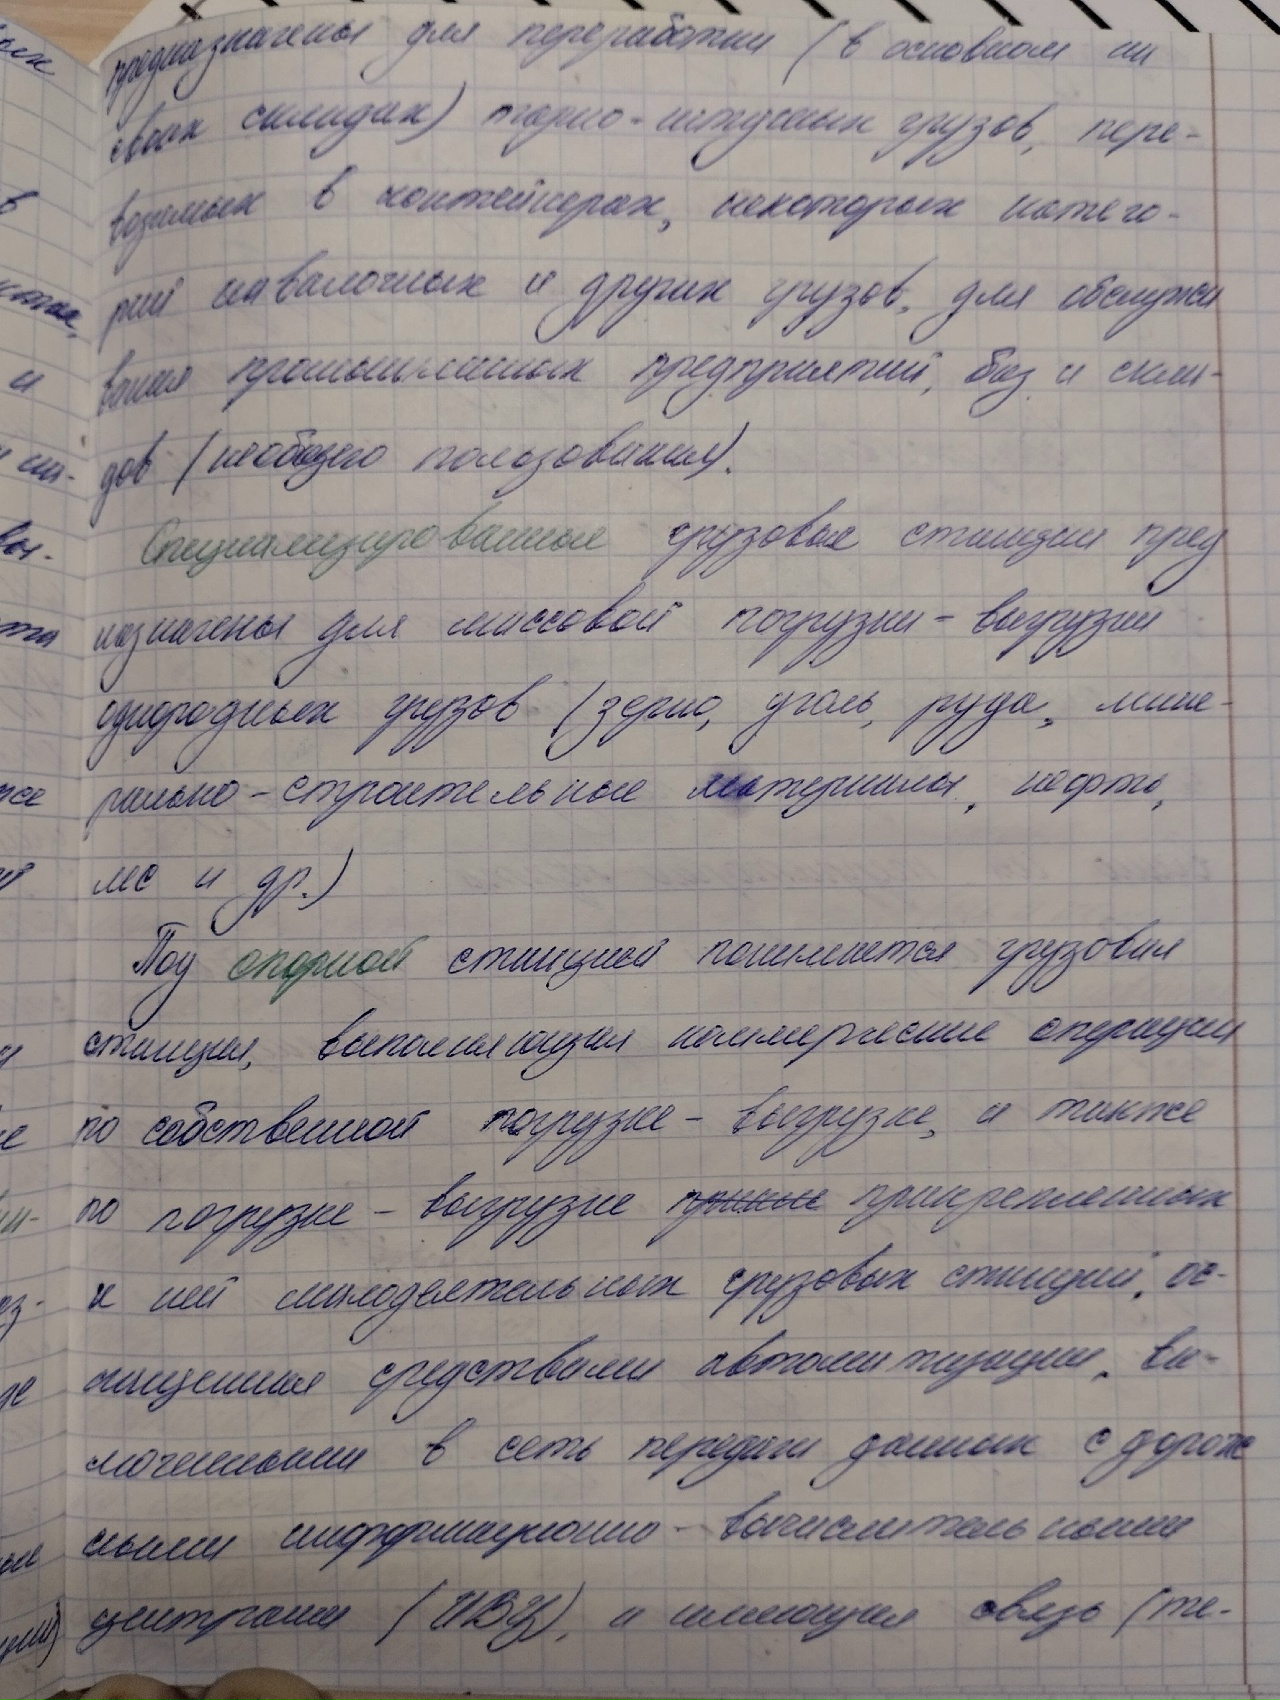 предназначены для переработки (в основном на
своих складах) тарно-штучных грузов, пере-
возимых в контейнерах, некоторых катего-
рий навалочных и других грузов, для обслужи
вания промышленных предприятий, баз и скла-
дов (необщего пользования).
Специализированные грузовые станции пред
назначены для массовой погрузки-выгрузки
однородных грузов (зерно, уголь, руда, мине-
рально-строительные материалы, нефть,
лес и др.)
Под опорной станцией понимается грузовая
станция, выполняющая коммерческие операции
по собственной погрузке-выгрузке, а также
по погрузке-выгрузке прикрепленных
к ней малодеятельных грузовых станций, ос-
нащенная средствами автоматизации, вк-
люченными в сеть передачи данных с дорож
ными информационно-вычислительными
центрами (ИВЦ), и имеющая связь (те-